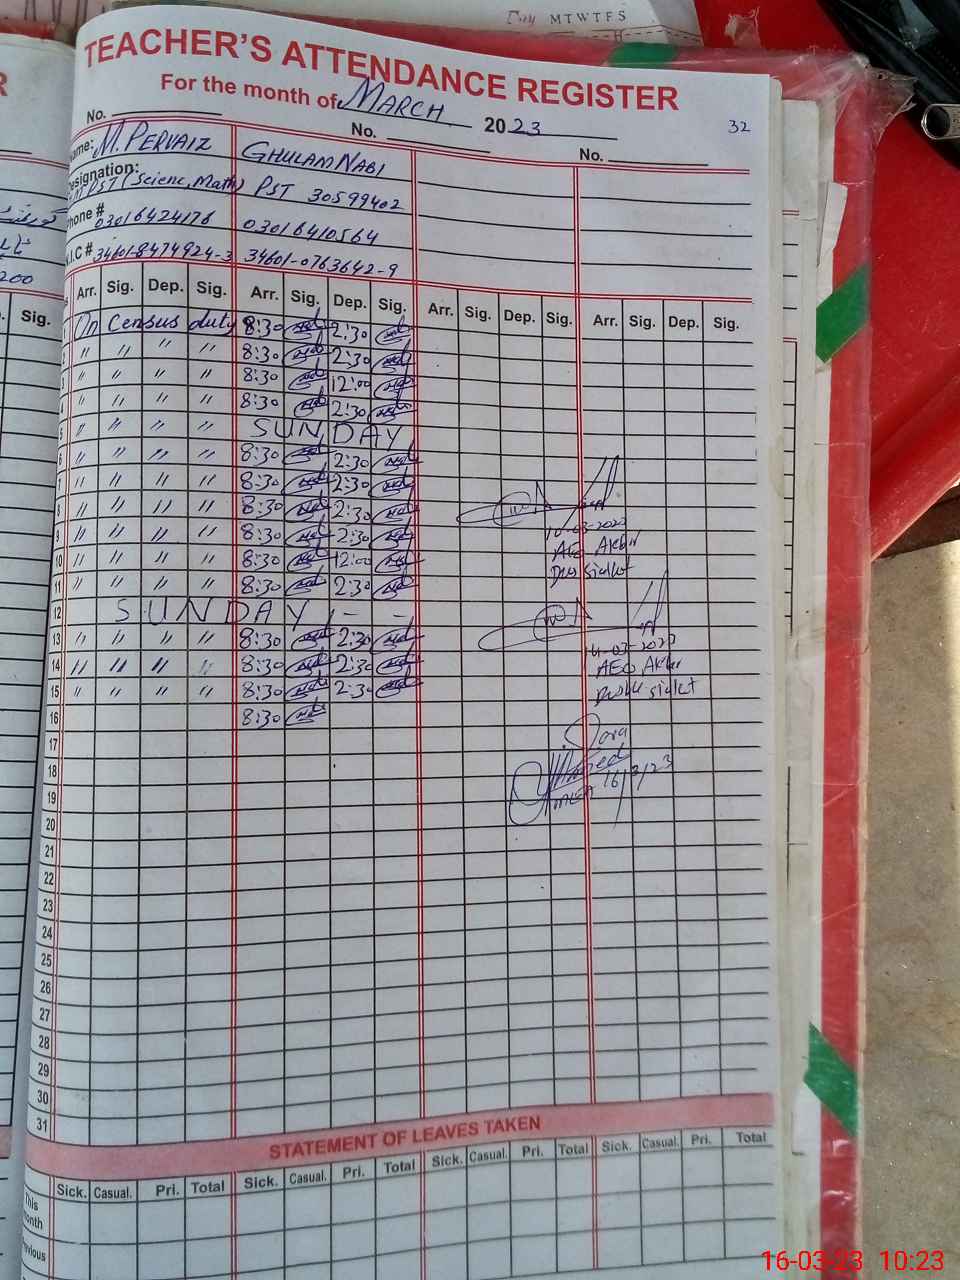 Day M T W T F S
TEACHER'S ATTENDANCE REGISTER
For the month of MARCH 2023
32
No. No. No.
Name: M. PERVAIZ GHULAM NABI
Designation: PST (Scienc, Math) PST 30599402
Phone # 03016424176 03016410564
N.I.C # 34601-8474924-3 34601-0763642-9
Sig. Arr. Sig. Dep. Sig. Arr. Sig. Dep. Sig. Arr. Sig. Dep. Sig. Arr. Sig. Dep. Sig.
1 On Census duty 8:30 2:30
2 〃 〃 〃 〃 8:30 2:30
3 〃 〃 〃 〃 8:30 12:00
4 〃 〃 〃 〃 8:30 2:30
5 〃 〃 〃 〃 SUNDAY
6 〃 〃 〃 〃 8:30 2:30
7 〃 〃 〃 〃 8:30 2:30
8 〃 〃 〃 〃 8:30 2:30
9 〃 〃 〃 〃 8:30 2:30
10 〃 〃 〃 〃 8:30 12:00
11 〃 〃 〃 〃 8:30 2:30
12 SUNDAY - -
13 〃 〃 〃 〃 8:30 2:30
14 〃 〃 〃 〃 8:30 2:30
15 〃 〃 〃 〃 8:30 2:30
16 8:30
17
18
19
20
21
22
23
24
25
26
27
28
29
30
31
-03-2023
AEO
Sialkot
14-03-2023
AEO
16/3/23
STATEMENT OF LEAVES TAKEN
Sick. Casual. Pri. Total Sick. Casual. Pri. Total Sick. Casual. Pri. Total Sick. Casual. Pri. Total
This
month
Previous
16-03-23 10:23